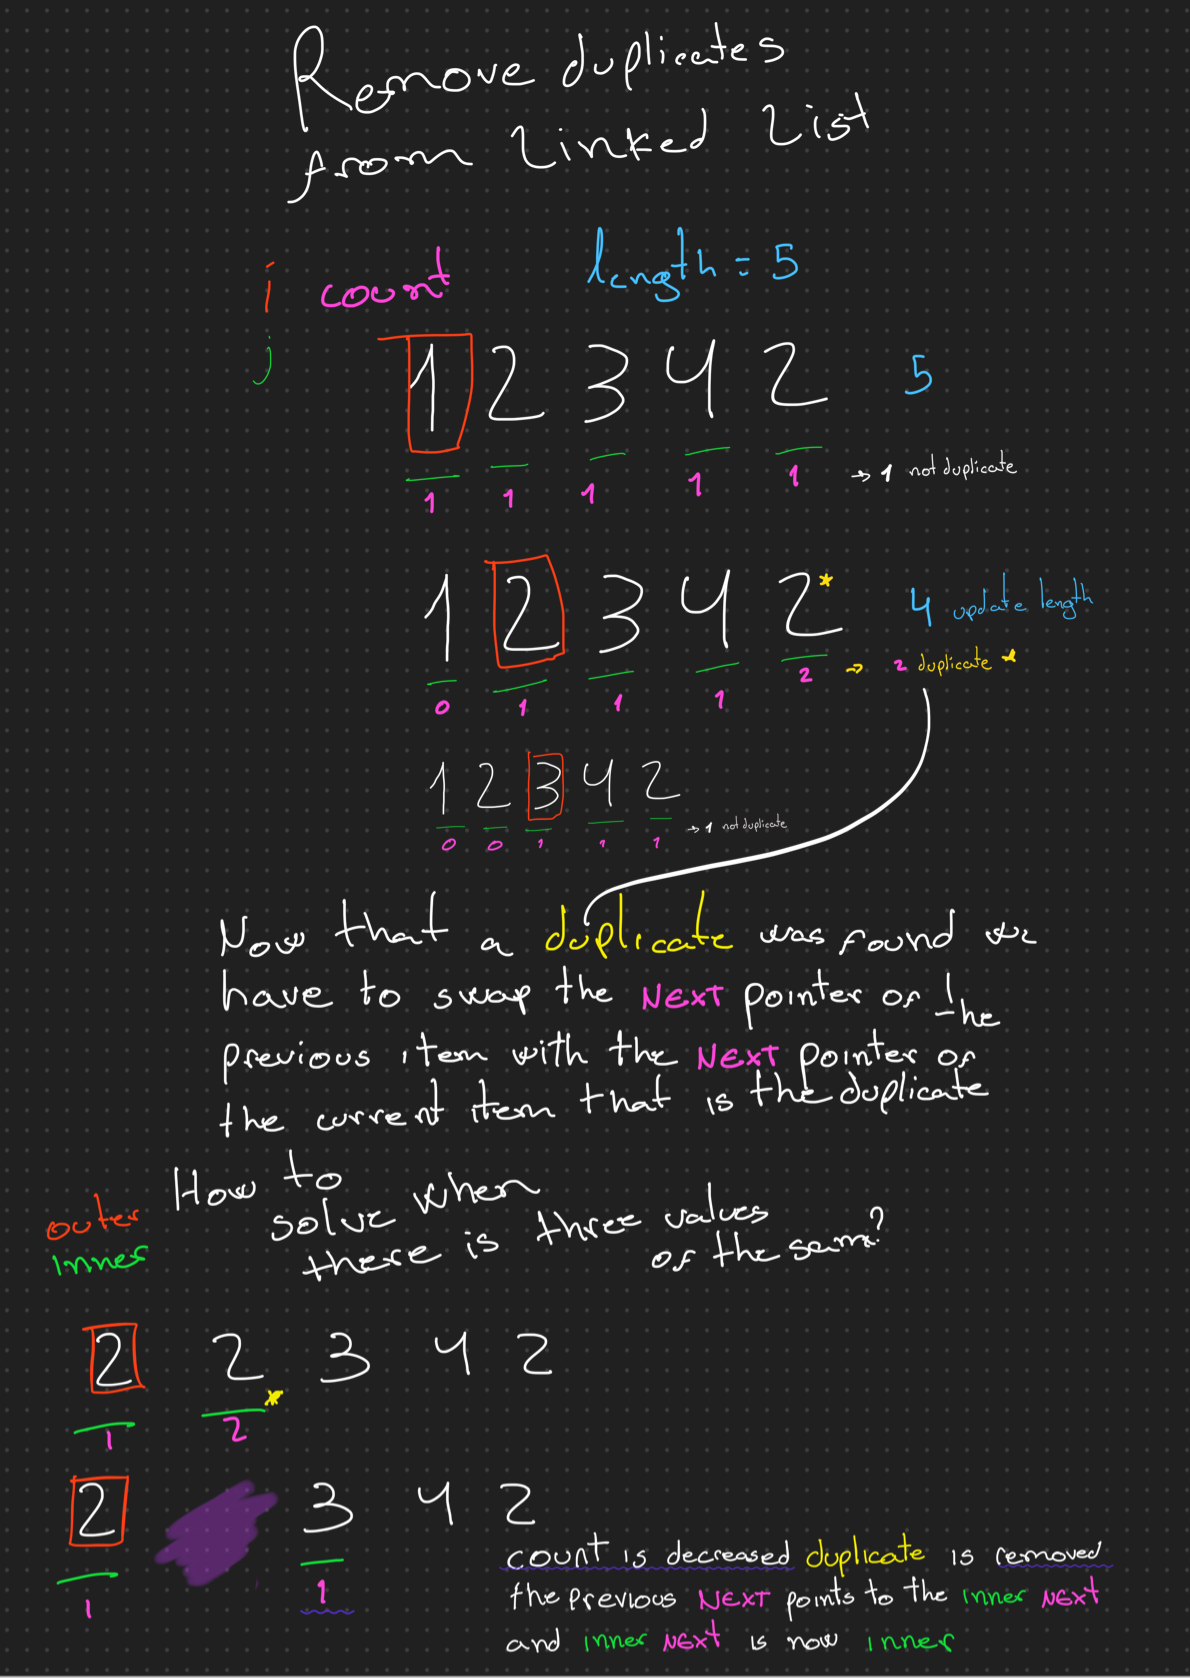 Remove duplicates
from Linked List
i count length = 5
j 1 2 3 4 2 5
1 1 1 1 1 → 1 not duplicate
1 2 3 4 2* 4 update length
0 1 1 1 2 → 2 duplicate *
1 2 3 4 2
0 0 1 1 1 → 1 not duplicate
Now that a duplicate was found we
have to swap the NEXT pointer of the
previous item with the NEXT pointer of
the current item that is the duplicate
How to
solve when
there is three values
of the same?
outer
inner
2 2 3 4 2
1 2 *
2 3 4 2
1 1
count is decreased duplicate is removed
the previous NEXT points to the inner NEXT
and inner NEXT is now inner